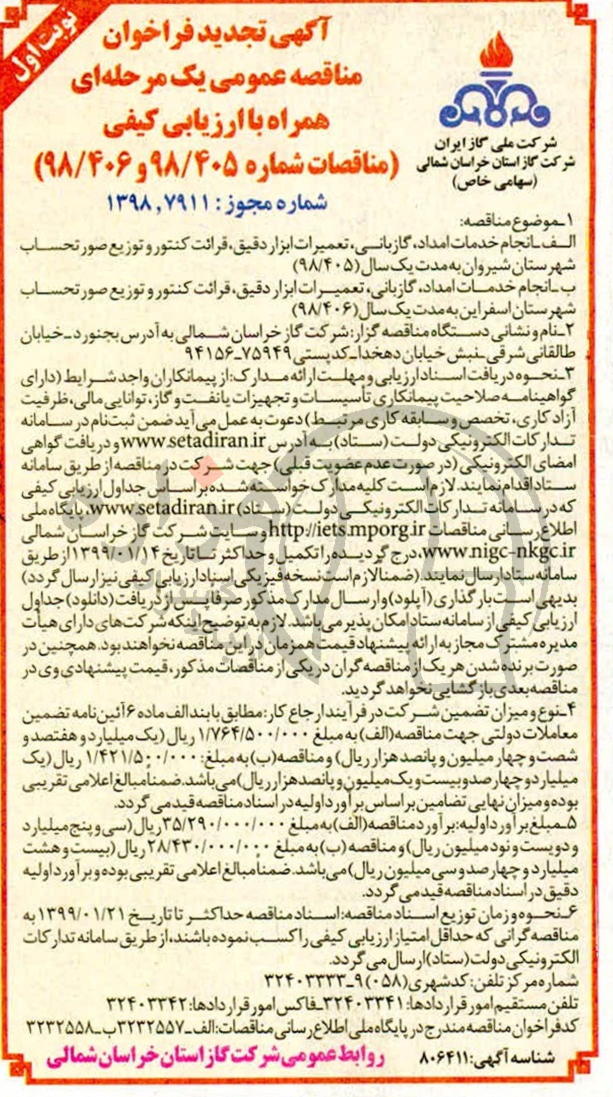 نوبت اول
آگهی تجدید فراخوان
مناقصه عمومی یک مرحله‌ای
همراه با ارزیابی کیفی
(مناقصات شماره ۹۸/۴۰۵ و ۹۸/۴۰۶)
شماره مجوز: ۱۳۹۸,۷۹۱۱
شرکت ملی گاز ایران
شرکت گاز استان خراسان شمالی
(سهامی خاص)
۱ـ موضوع مناقصه:
الف ـ انجام خدمات امداد، گازبانی، تعمیرات ابزار دقیق، قرائت کنتور و توزیع صورتحساب
شهرستان شیروان به مدت یک سال (۹۸/۴۰۵)
ب ـ انجام خدمات امداد، گازبانی، تعمیرات ابزار دقیق، قرائت کنتور و توزیع صورتحساب
شهرستان اسفراین به مدت یک سال (۹۸/۴۰۶)
۲ـ نام و نشانی دستگاه مناقصه گزار: شرکت گاز خراسان شمالی به آدرس بجنورد ـ خیابان
طالقانی شرقی ـ نبش خیابان دهخدا ـ کدپستی ۷۵۹۴۹ـ۹۴۱۵۶
۳ـ نحوه دریافت اسناد ارزیابی و مهلت ارائه مدارک: از پیمانکاران واجد شرایط (دارای
گواهینامه صلاحیت پیمانکاری تأسیسات و تجهیزات یا نفت و گاز، توانایی مالی، ظرفیت
آزاد کاری، تخصص و سابقه کاری مرتبط) دعوت به عمل می‌آید ضمن ثبت‌نام در سامانه
تدارکات الکترونیکی دولت (ستاد) به آدرس www.setadiran.ir و دریافت گواهی
امضای الکترونیکی (در صورت عدم عضویت قبلی) جهت شرکت در مناقصه از طریق سامانه
ستاد اقدام نمایند. لازم است کلیه مدارک خواسته شده بر اساس جداول ارزیابی کیفی
که در سامانه تدارکات الکترونیکی دولت (ستاد) www.setadiran.ir، پایگاه ملی
اطلاع رسانی مناقصات http://iets.mporg.ir و سایت شرکت گاز خراسان شمالی
www.nigc-nkgc.ir، درج گردیده را تکمیل و حداکثر تا تاریخ ۱۳۹۹/۰۱/۱۴ از طریق
سامانه ستاد ارسال نمایند. (ضمنا لازم است نسخه فیزیکی اسناد ارزیابی کیفی نیز ارسال گردد)
بدیهی است بارگذاری (آپلود) و ارسال مدارک مذکور صرفا پس از دریافت (دانلود) جداول
ارزیابی کیفی از سامانه ستاد امکان پذیر می‌باشد. لازم به توضیح اینکه شرکت‌های دارای هیأت
مدیره مشترک مجاز به ارائه پیشنهاد قیمت همزمان در این مناقصه نخواهند بود. همچنین در
صورت برنده شدن هر یک از مناقصه گران در یکی از مناقصات مذکور، قیمت پیشنهادی وی در
مناقصه بعدی بازگشایی نخواهد گردید.
۴ـ نوع و میزان تضمین شرکت در فرآیند ارجاع کار: مطابق با بند الف ماده ۶ آئین‌نامه تضمین
معاملات دولتی جهت مناقصه (الف) به مبلغ ۱/۷۶۴/۵۰۰/۰۰۰ ریال (یک میلیارد و هفتصد و
شصت و چهار میلیون و پانصد هزار ریال) و مناقصه (ب) به مبلغ: ۱/۴۲۱/۵۰۰/۰۰۰ ریال (یک
میلیارد و چهارصد و بیست و یک میلیون و پانصد هزار ریال) می‌باشد. ضمنا مبالغ اعلامی تقریبی
بوده و میزان نهایی تضامین بر اساس برآورد اولیه در اسناد مناقصه قید می گردد.
۵ـ مبلغ برآورد اولیه: برآورد مناقصه (الف) به مبلغ ۳۵/۲۹۰/۰۰۰/۰۰۰ ریال (سی و پنج میلیارد
و دویست و نود میلیون ریال) و مناقصه (ب) به مبلغ ۲۸/۴۳۰/۰۰۰/۰۰۰ ریال (بیست و هشت
میلیارد و چهارصد و سی میلیون ریال) می‌باشد. ضمنا مبالغ اعلامی تقریبی بوده و برآورد اولیه
دقیق در اسناد مناقصه قید می گردد.
۶ـ نحوه و زمان توزیع اسناد مناقصه: اسناد مناقصه حداکثر تا تاریخ ۱۳۹۹/۰۱/۲۱ به
مناقصه گرانی که حداقل امتیاز ارزیابی کیفی را کسب نموده باشند، از طریق سامانه تدارکات
الکترونیکی دولت (ستاد) ارسال می گردد.
شماره مرکز تلفن: کد شهری (۰۵۸) ۹ـ۳۲۴۰۳۳۳۳
تلفن مستقیم امور قراردادها: ۳۲۴۰۳۳۴۱ـ فاکس امور قراردادها: ۳۲۴۰۳۳۴۲
کد فراخوان مناقصه مندرج در پایگاه ملی اطلاع رسانی مناقصات: الف ـ ۳۲۳۲۵۵۷ ب ـ ۳۲۳۲۵۵۸
شناسه آگهی: ۸۰۶۴۱۱
روابط عمومی شرکت گاز استان خراسان شمالی